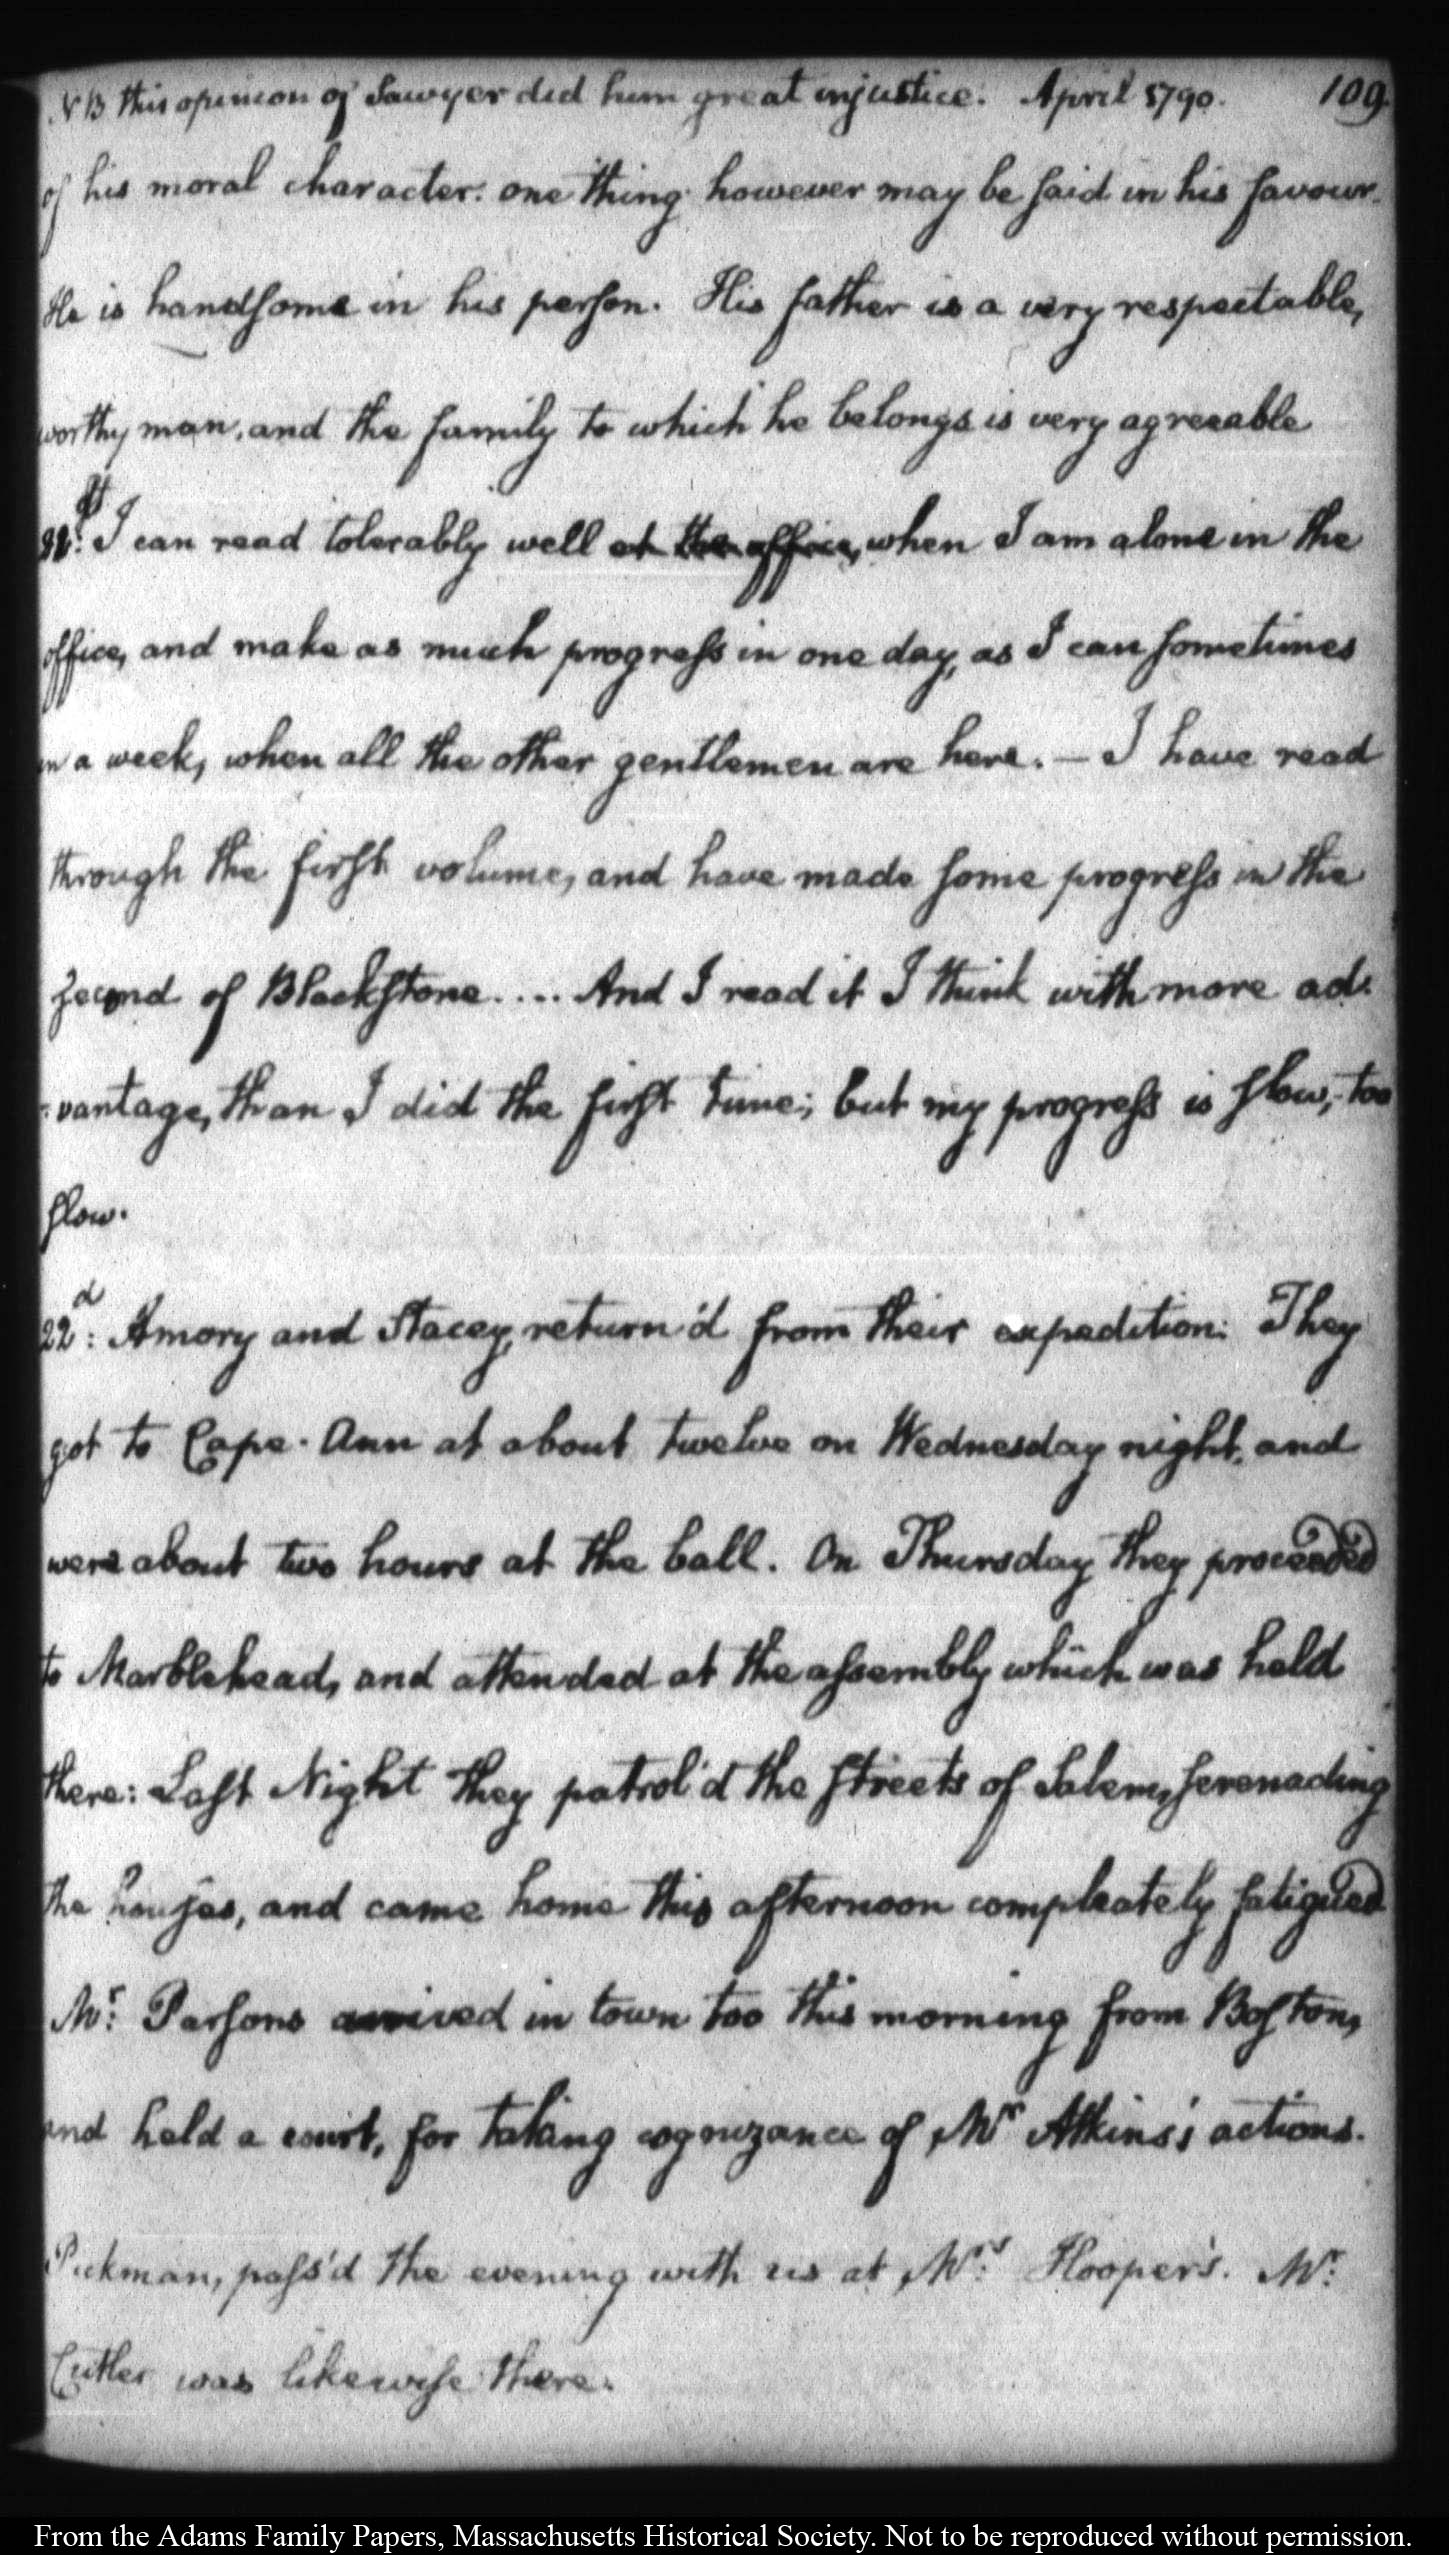 NB this opinion of Sawyer did him great injustice. April 1790. 109.
of his moral character: one thing however may be said in his favour.
He is handsome in his person. His father is a very respectable,
worthy man, and the family to which he belongs is very agreeable
st I can read tolerably well at the office, when I am alone in the
office, and make as much progress in one day, as I can sometimes
in a week, when all the other gentlemen are here. — I have read
through the first volume, and have made some progress in the
second of Blackstone.... And I read it I think with more ad:
:vantage, than I did the first time; but my progress is slow, too
slow.
22d: Amory and Stacey, return'd from their expedition: They
got to Cape-Ann at about twelve on Wednesday night, and
were about two hours at the ball. On Thursday they proceeded
to Marblehead, and attended at the assembly which was held
there: Last Night they patrol'd the streets of Salem, serenading
the houses, and came home this afternoon compleately fatigued
Mr: Parsons arrived in town too this morning from Boston,
and held a court, for taking cognizance of Mr Atkins's actions.
Pickman, pass'd the evening with us at Mrs: Hooper's. Mr:
Cutler was likewise there.
From the Adams Family Papers, Massachusetts Historical Society. Not to be reproduced without permission.